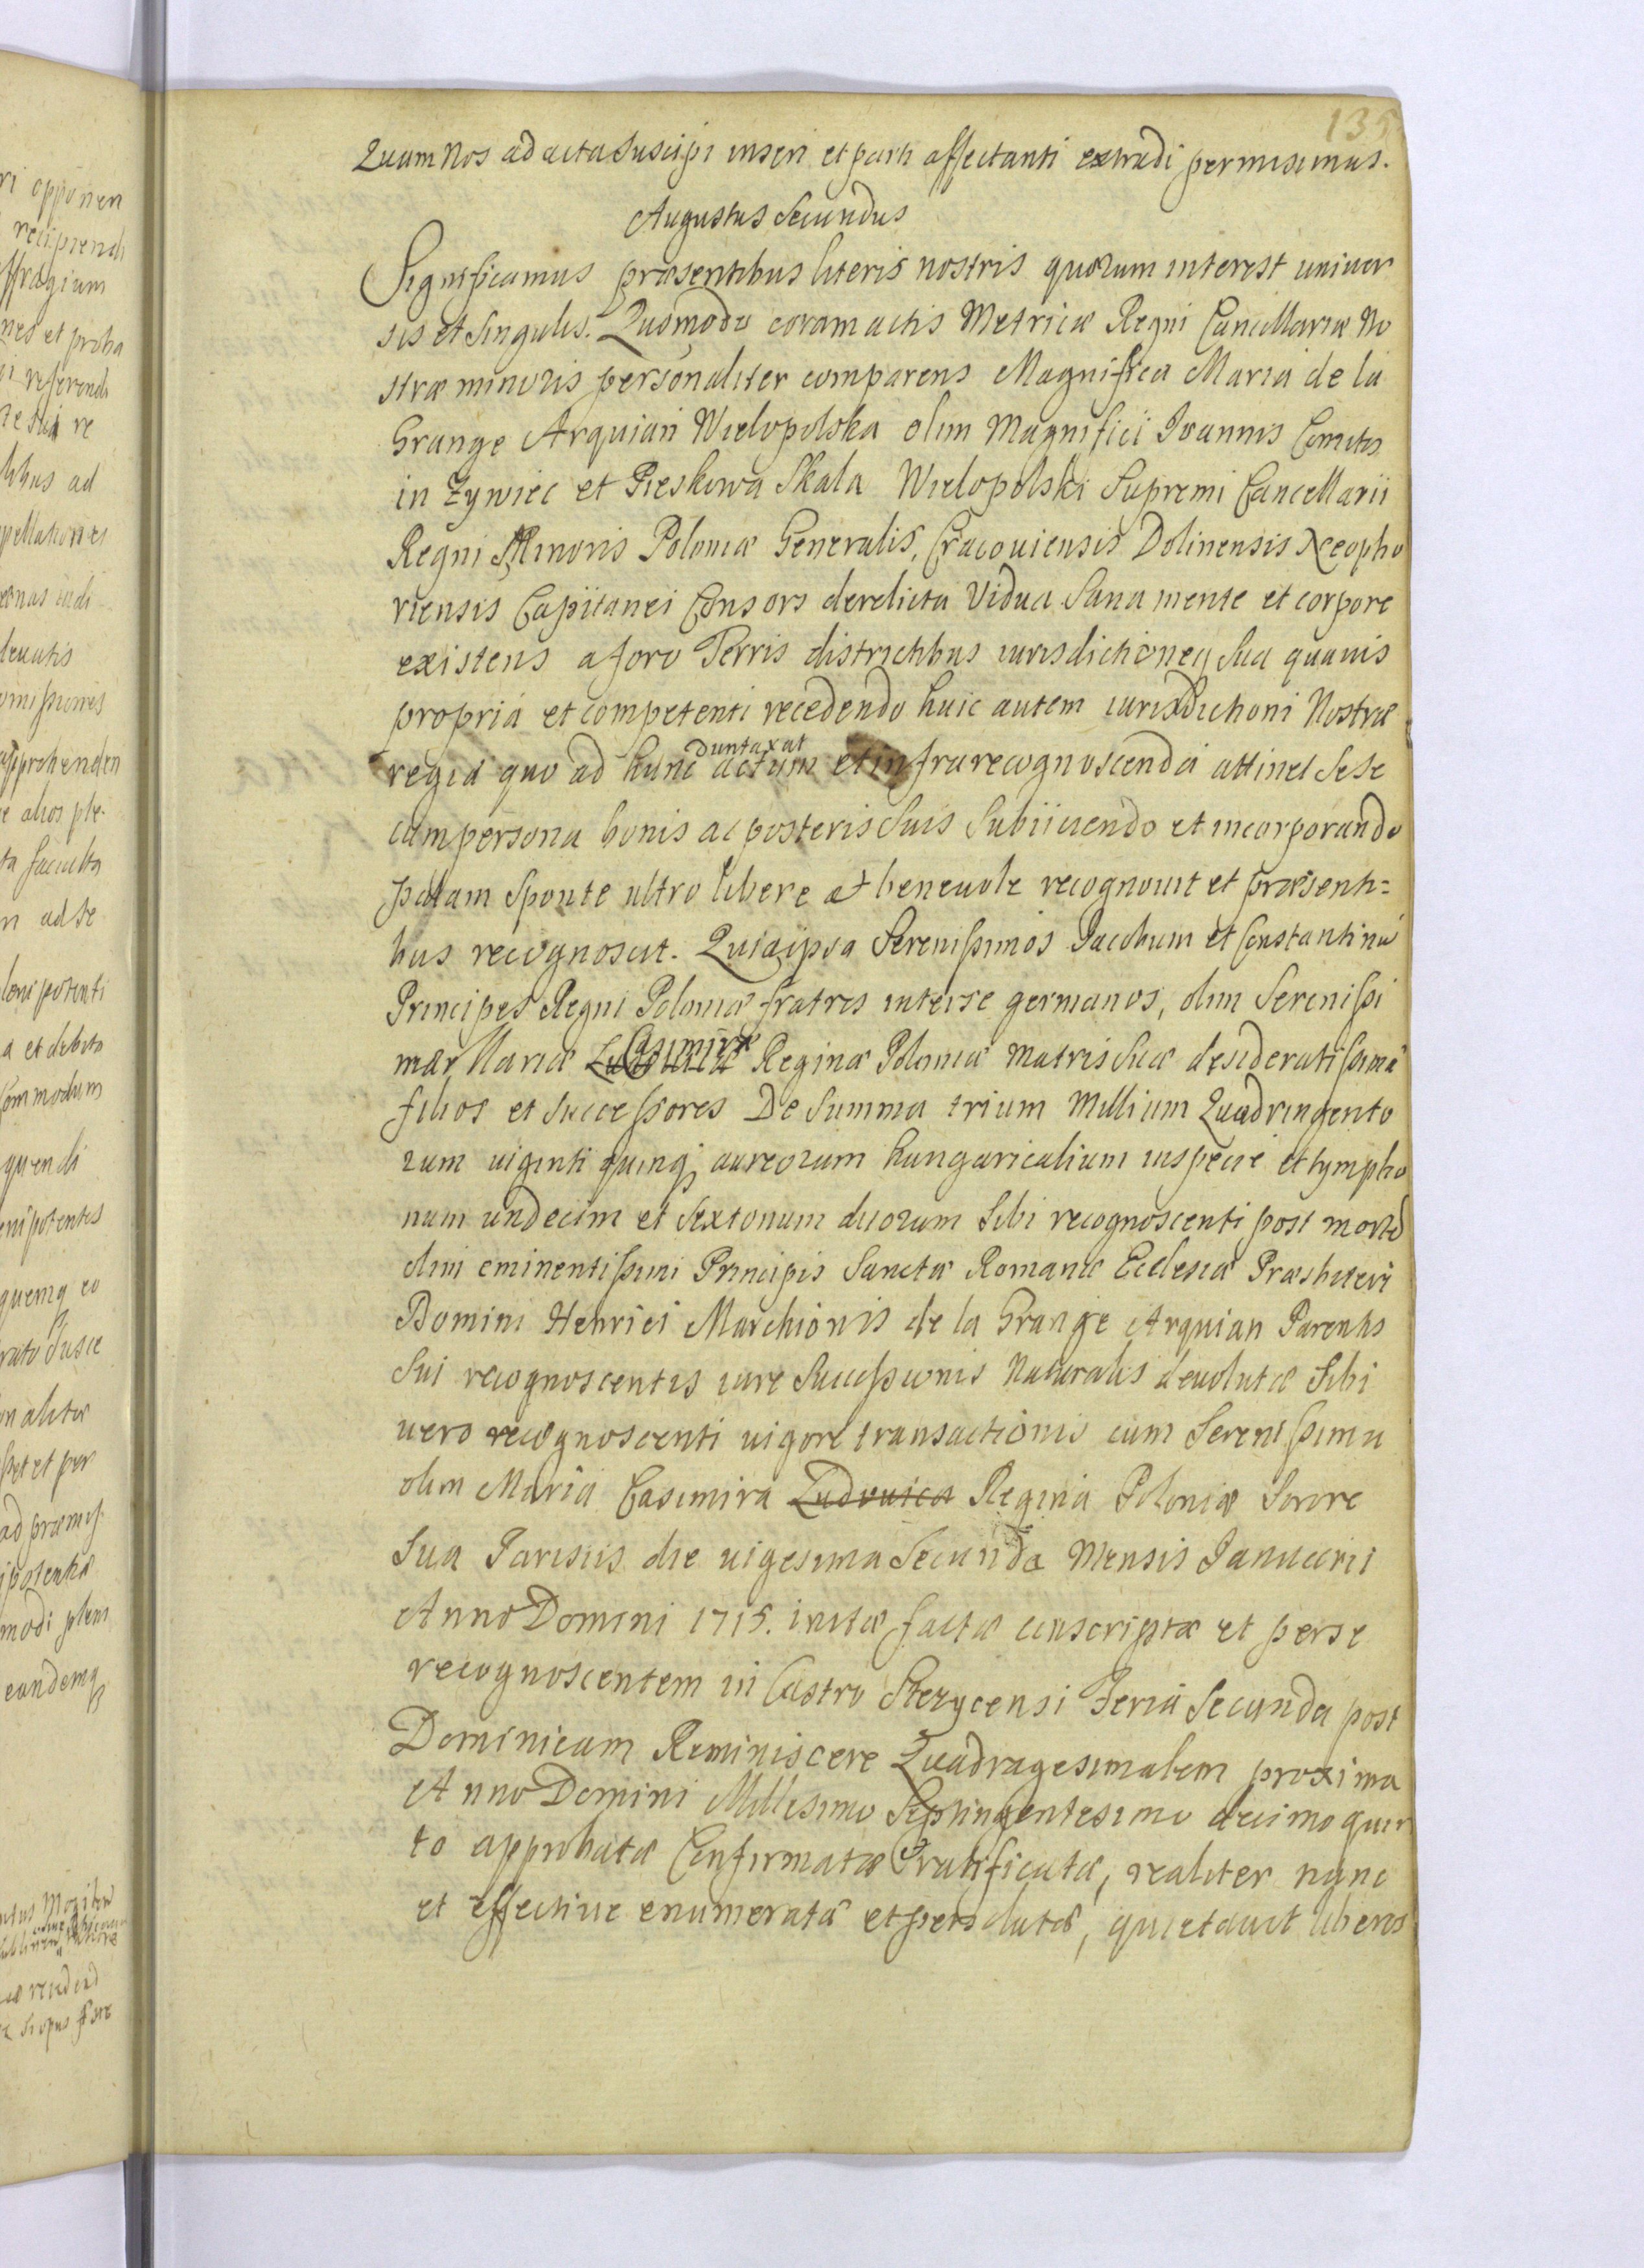 135
Quam Nos ad acta suscipi inseri et parti affectanti extradi permisimus.
Augustus Secundus
Significamus præsentibus literis nostris quorum interest univer
sis et singulis. Quomodo coram actis Metricæ Regni Cancellariæ No
stræ minoris personaliter comparens Magnifica Maria de la
Grange Arquian Wielopolska olim Magnifici Ioannis Comitis
in Zywiec et Pieskowa Skala Wielopolski Supremi Cancellarii
Regni Minoris Poloniæ Generalis, Cracoviensis Dolinensis
riensis Capitanei Consors derelicta Vidua Sana mente et corpore
existens a foro Terris districtibus iurisdictioneq sua quavis
propria et competenti recedendo huic autem iurisdictioni Nostræ
regiæ quo ad hunc duntaxat actum et infra recognoscenda attinet sese
cum persona bonis ac posteris suis subiiciendo et incorporando
palam sponte ultro libere et benevole recognovit et præsenti=
bus recognoscit. Quia ipsa Serenissimos Jacobum et Constantinū
Principes Regni Poloniæ fratres inter se germanos, olim Serenissi
mæ Mariæ Casimiræ Reginæ Poloniæ Matris suæ desideratissimæ
filios et successores De summa trium Millium Quadringento
rum viginti quinq aureorum hungaricalium in specie et tympho
num undecim et sextonum duorum sibi recognoscenti post mortē
olim eminentissimi Principis Sanctæ Romanæ Ecclesiæ Præsbiteri
Domini Henrici Marchionis de la Grange Arquian Parentis
sui recognoscentis iure successionis Naturalis devolutæ sibi
vero recognoscenti vigore transactionis cum Serenissima
olim Maria Casimira Ludovica Regina Poloniæ Sorore
sua Parisiis die vigesima secunda Mensis Januarii
Anno Domini 1715. initæ factæ conscriptæ et per se
recognoscentem in Castro Stezycensi Feria Secunda post
Dominicam Reminiscere Quadragesimalem proxima
Anno Domini Millesimo Septingentesimo decimo quin
to approbatæ Confirmatæ & ratificatæ, realiter nunc
et effective enumeratæ et persolutæ, quietavit liberos